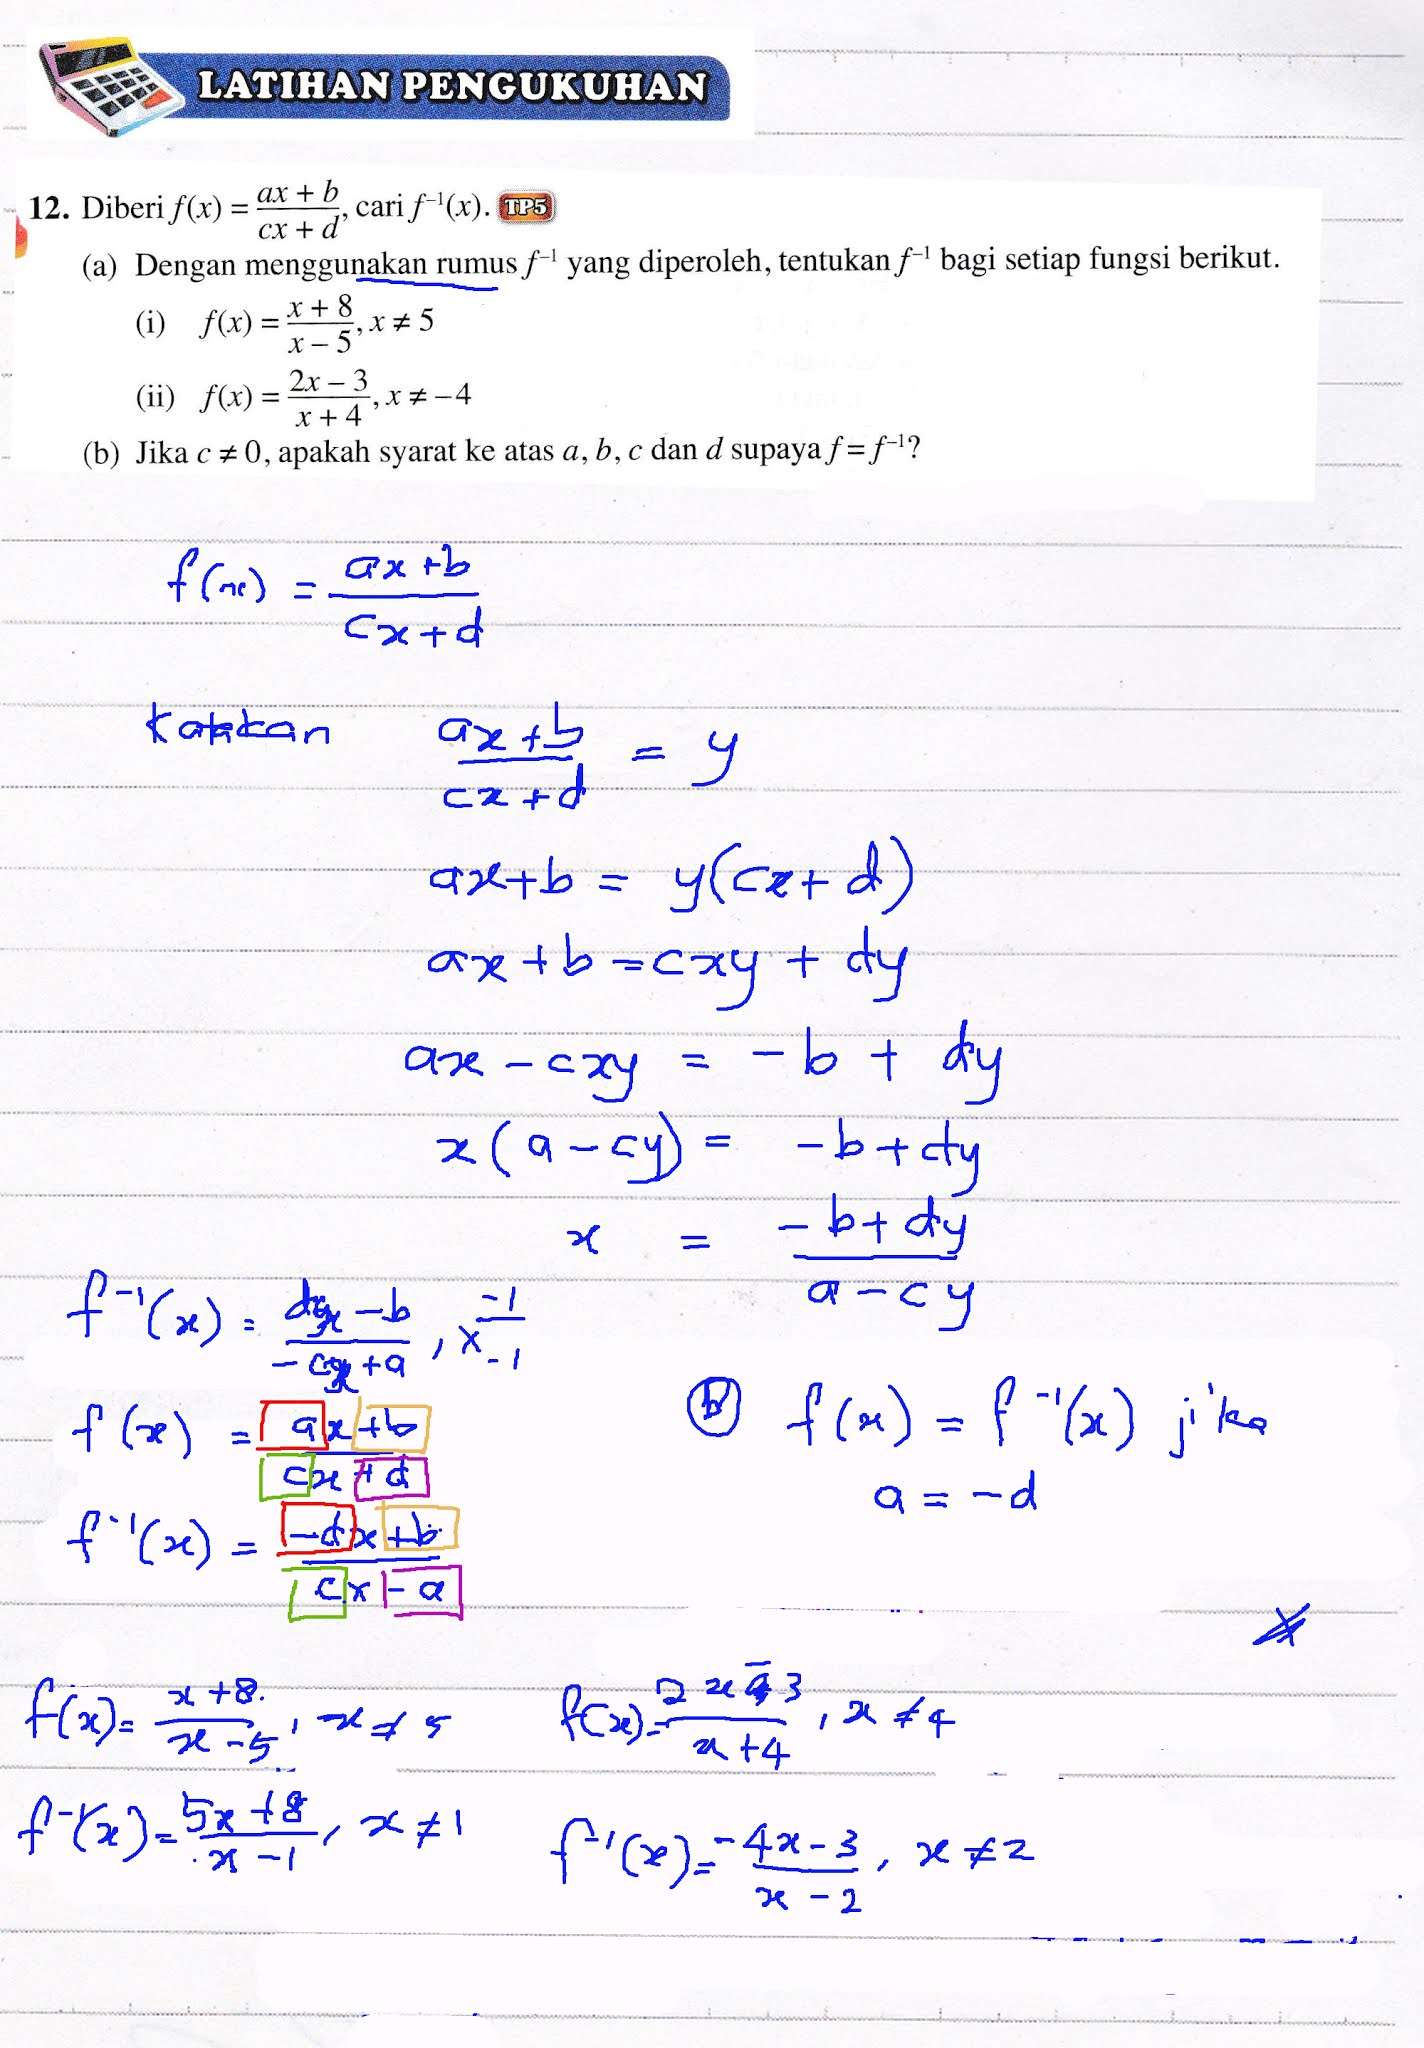 LATIHAN PENGUKUHAN
12. Diberi f(x) = (ax + b)/(cx + d), cari f⁻¹(x). TP5
(a) Dengan menggunakan rumus f⁻¹ yang diperoleh, tentukan f⁻¹ bagi setiap fungsi berikut.
(i) f(x) = (x + 8)/(x – 5), x ≠ 5
(ii) f(x) = (2x – 3)/(x + 4), x ≠ –4
(b) Jika c ≠ 0, apakah syarat ke atas a, b, c dan d supaya f = f⁻¹?
f(x) = (ax + b)/(cx + d)
Katakan (ax + b)/(cx + d) = y
ax + b = y(cx + d)
ax + b = cxy + dy
ax – cxy = –b + dy
x(a – cy) = –b + dy
x = (–b + dy)/(a – cy)
f⁻¹(x) = (dx – b)/(–cx + a), × –1/–1
f(x) = (ax + b)/(cx + d)
f⁻¹(x) = (–dx + b)/(cx – a)
(b) f(x) = f⁻¹(x) jika
a = –d
f(x) = (x + 8)/(x – 5), x ≠ 5
f⁻¹(x) = (5x + 8)/(x – 1), x ≠ 1
f(x) = (2x – 3)/(x + 4), x ≠ 4
f⁻¹(x) = (–4x – 3)/(x – 2), x ≠ 2